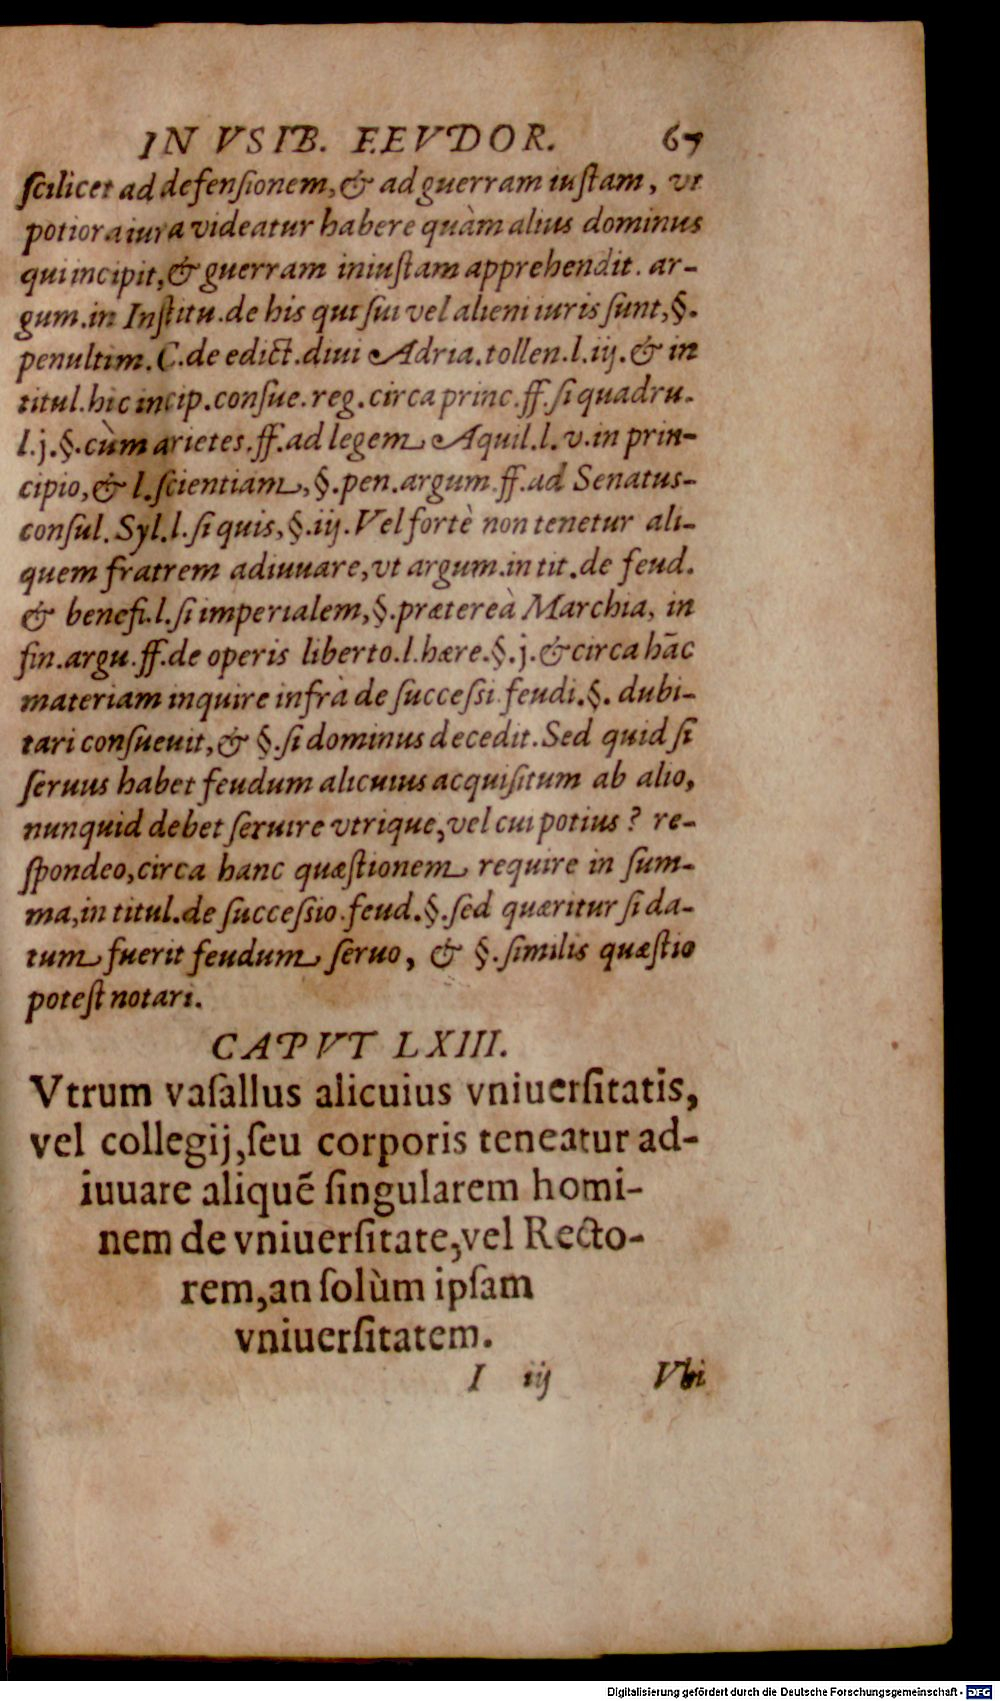 IN VSIB. FEVDOR. 67
ſcilicet ad defenſionem, & ad guerram iuſtam, vt
potiora iura videatur habere quàm alius dominus
qui incipit, & guerram iniuſtam apprehendit. ar-
gum. in Inſtitu. de his qui ſui vel alieni iuris ſunt, §.
penultim. C. de edict. diui Adria. tollen. l. iij. & in
titul. hic incip. conſue. reg. circa princ. ff. ſi quadru.
l. j. §. cùm arietes. ff. ad legem Aquil. l. v. in prin-
cipio, & l. ſcientiam, §. pen. argum. ff. ad Senatus-
conſul. Syl. l. ſi quis, §. iij. Vel fortè non tenetur ali-
quem fratrem adiuuare, vt argum. in tit. de feud.
& benefi. l. ſi imperialem, §. præterea Marchia, in
fin. argu. ff. de operis liberto. l. hære. §. j. & circa hãc
materiam inquire infrà de ſucceſſi. feudi. §. dubi-
tari conſueuit, & §. ſi dominus decedit. Sed quid ſi
ſeruus habet feudum alicuius acquiſitum ab alio,
nunquid debet ſeruire vtrique, vel cui potius? re-
ſpondeo, circa hanc quæſtionem require in ſum-
ma, in titul. de ſucceſſio. feud. §. ſed quæritur ſi da-
tum fuerit feudum ſeruo, & §. ſimilis quæſtio
poteſt notari.
CAPVT LXIII.
Vtrum vaſallus alicuius vniuerſitatis,
vel collegij, ſeu corporis teneatur ad-
iuuare aliquẽ ſingularem homi-
nem de vniuerſitate, vel Recto-
rem, an ſolùm ipſam
vniuerſitatem.
I iij Vbi
Digitalisierung gefördert durch die Deutsche Forschungsgemeinschaft - DFG